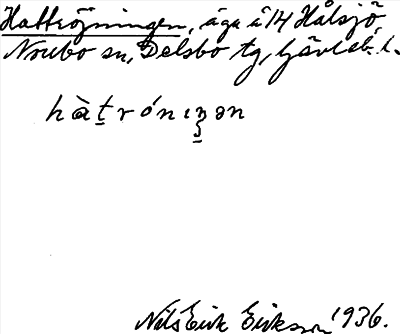 Hattröjningen, äga å 14 Hålsjö,
Norrbo sn, Delsbo tg, Gävleb. l.
hàt̠rónıŋ̠ən
Nils Eirik Eiriksson 1936.